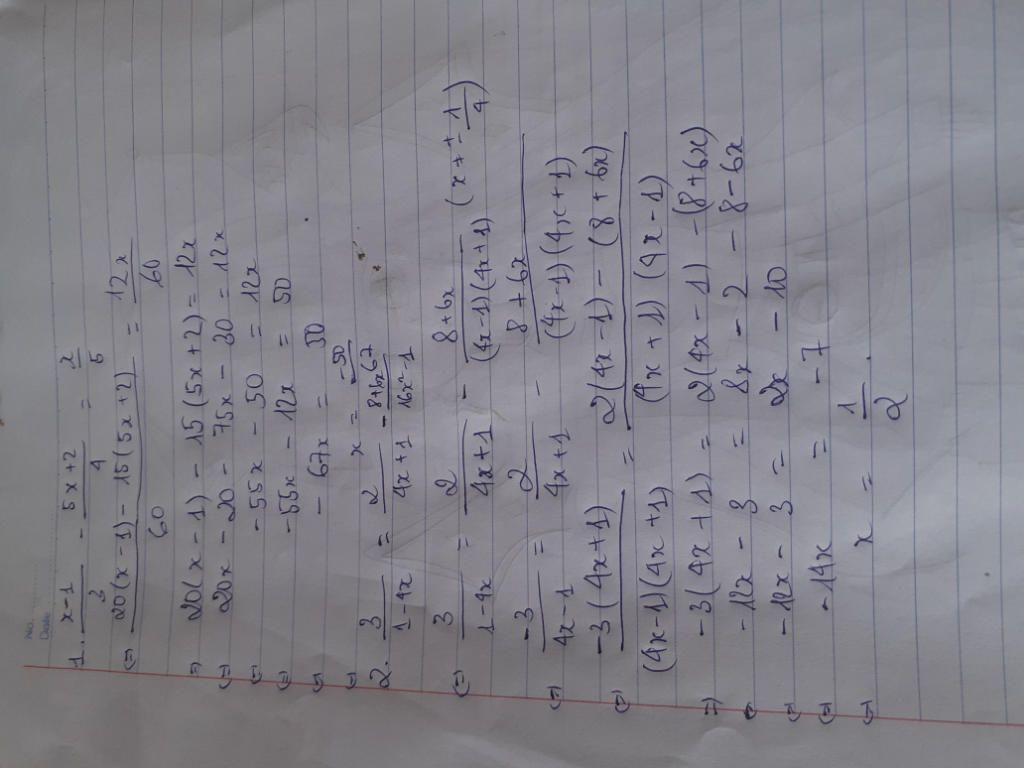 No.
Date
1. (x-1)/3 - (5x+2)/4 = x/5
(=) (20(x-1) - 15(5x+2))/60 = 12x/60
=) 20(x-1) - 15(5x+2) = 12x
(=) 20x - 20 - 75x - 30 = 12x
(=) -55x - 50 = 12x
(=) -55x - 12x = 50
(=) -67x = 50
(=) x = -50/67
2. 3/(1-4x) = 2/(4x+1) - (8+6x)/(16x²-1)
(=) 3/(1-4x) = 2/(4x+1) - (8+6x)/((4x-1)(4x+1)) (x ≠ ± 1/4)
(=) -3/(4x-1) = 2/(4x+1) - (8+6x)/((4x-1)(4x+1))
(=) -3(4x+1)/((4x-1)(4x+1)) = (2(4x-1) - (8+6x))/((4x+1)(4x-1))
=) -3(4x+1) = 2(4x-1) - (8+6x)
(=) -12x - 3 = 8x - 2 - 8 - 6x
(=) -12x - 3 = 2x - 10
(=) -14x = -7
(=) x = 1/2.